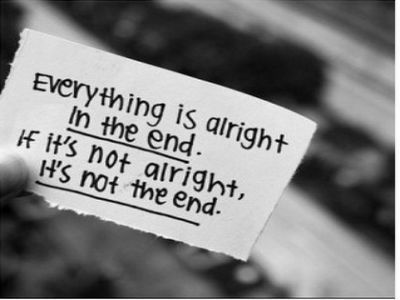 Everything is alright
In the end.
If it's not alright,
It's not the end.